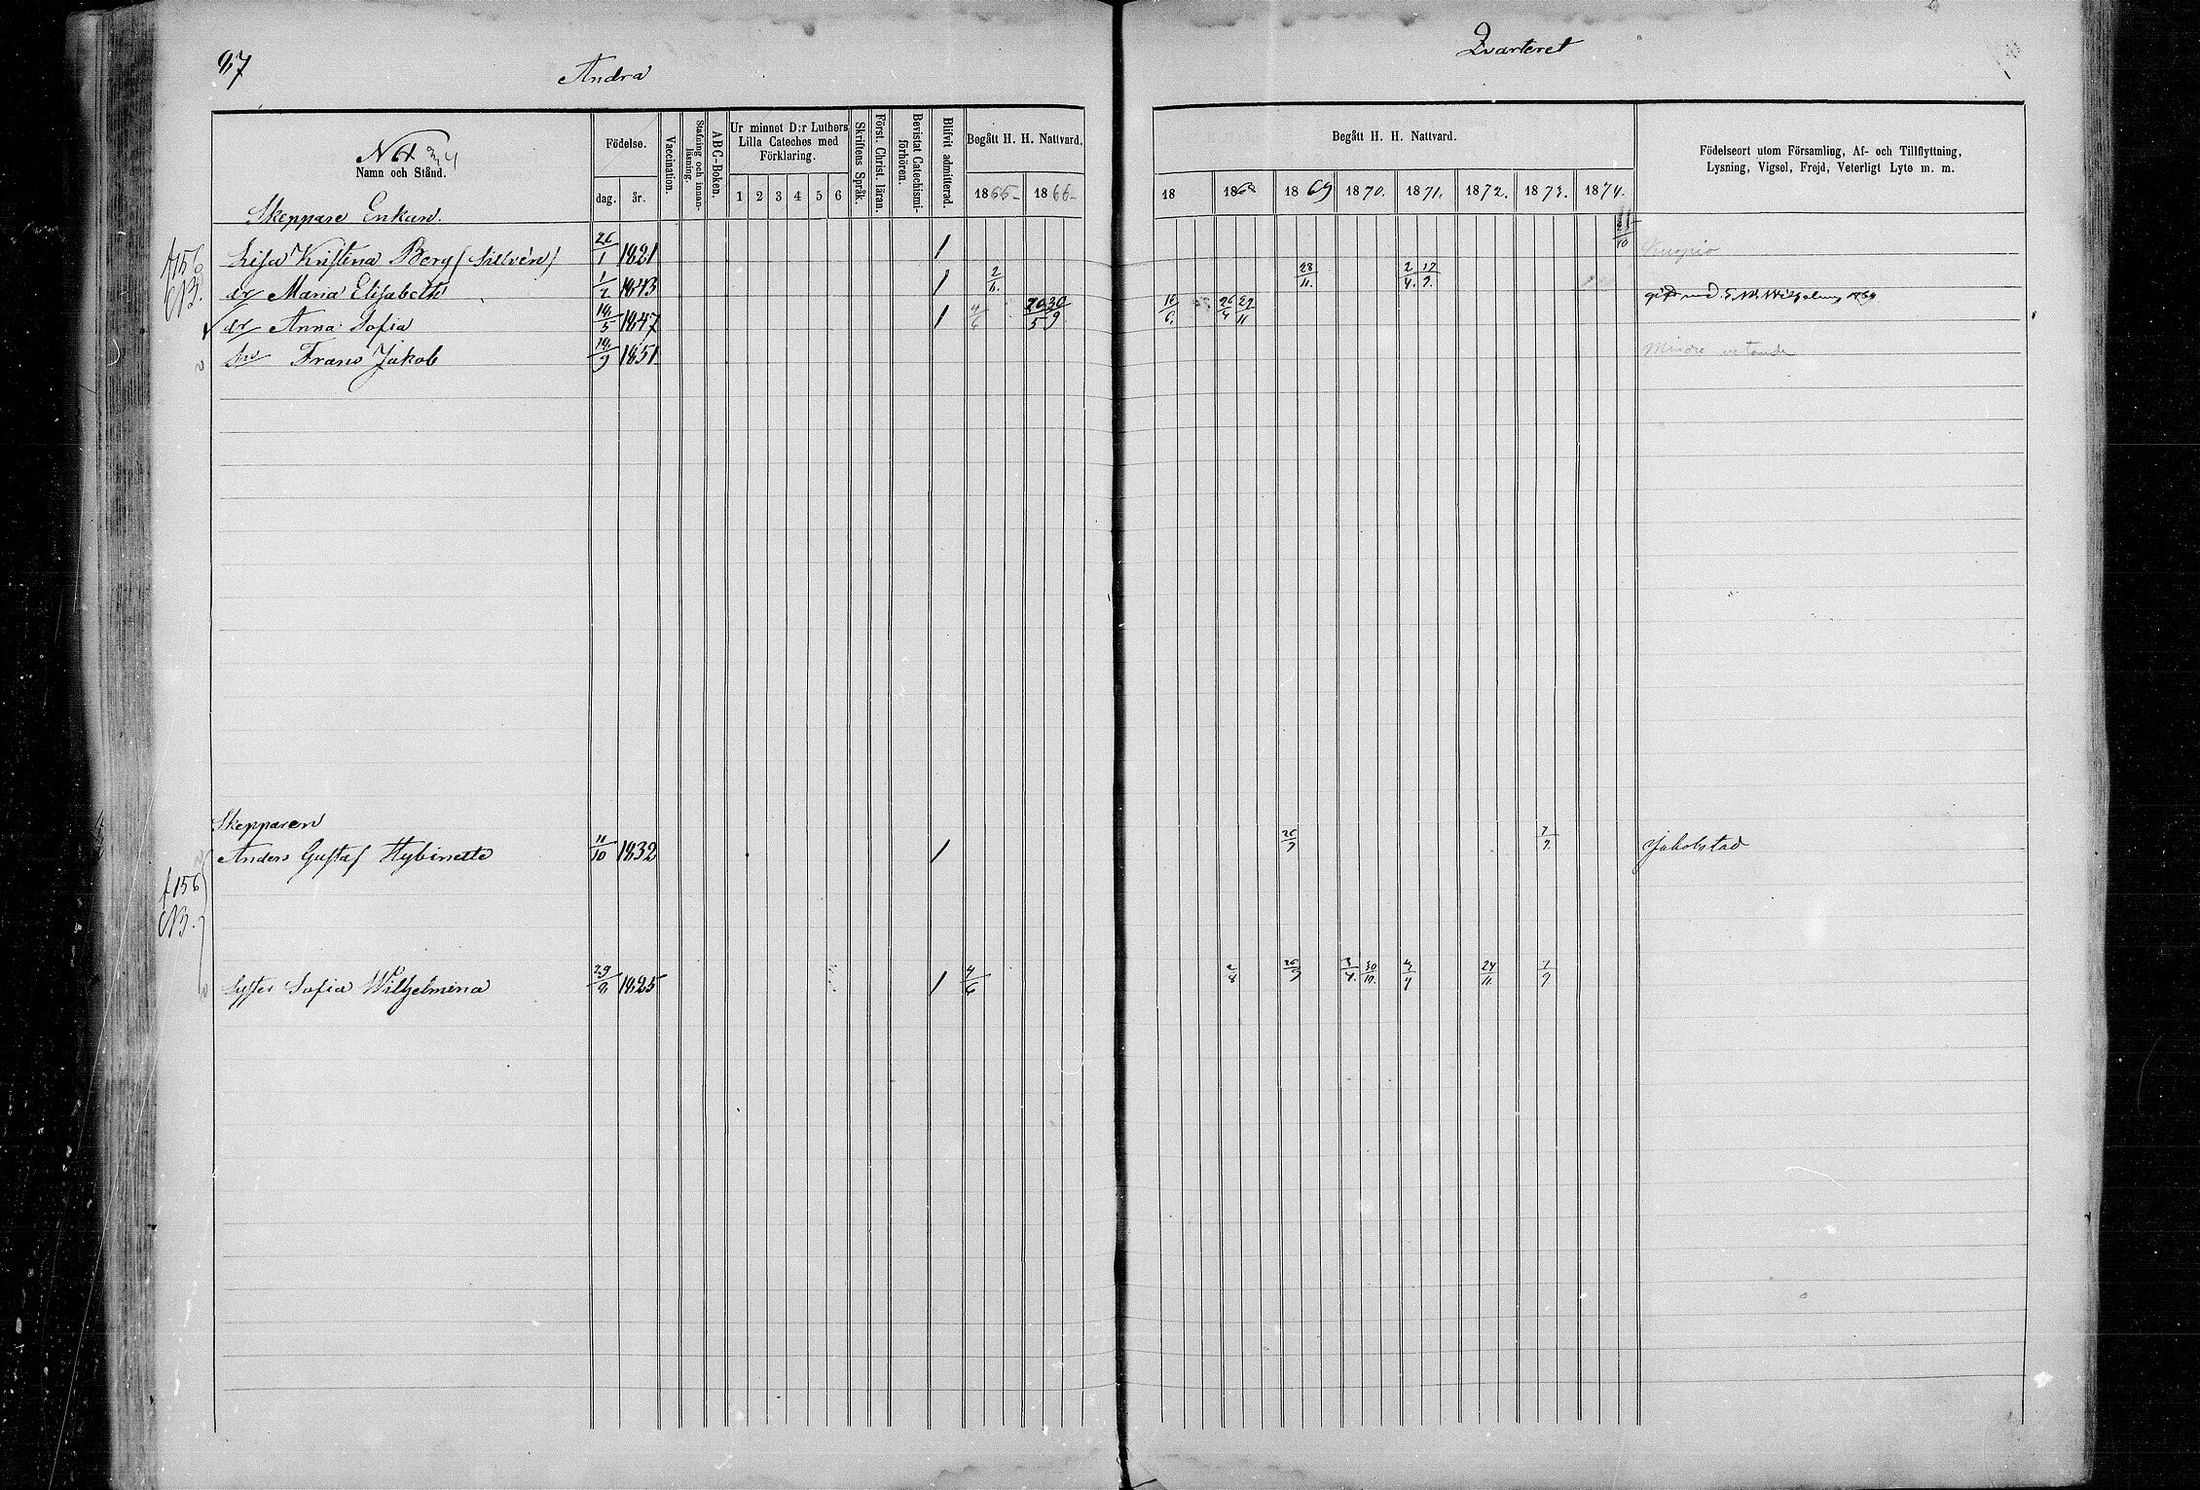 97
Andra
Qvarteret
Namn och Stånd.
Födelse.
dag. år.
Vaccination.
Stafning och innanläsning.
ABC-Boken.
Ur minnet D:r Luthers Lilla Cateches med Förklaring.
1 2 3 4 5 6
Skriftens Språk.
Först. Christ. läran.
Bevistat Catechismiförhören.
Blifvit admitterad.
Begått H. H. Nattvard.
1865 1866
Begått H. H. Nattvard.
18 1869 1870. 1871. 1872. 1873. 1874.
Födelseort utom Församling, Af- och Tillflyttning,
Lysning, Vigsel, Frejd, Veterligt Lyte m. m.
Skeppare Enkan
f 156
Lisa Kristina Berg (Sillvén) 26/1 1821 1 Kuopio
dr Maria Elisabeth 1/2 1843 1 2/6. 28/11. 2/4. 17/9.
dr Anna Sofia 14/5 1847 1 4/6 20/5 30/9 16/6. 26/4 29/11
Frans Jakob 14/9 1851 Mindre vetande
Skepparen
Anders Gustaf Hybinette 11/10 1832 1 26/9 7/9 Jakobstad
f 156
Syster Sofia Wilhelmina 29/9 1825 1 4/6 2/8 26/9 3/4. 30/10. 24/11. 7/9